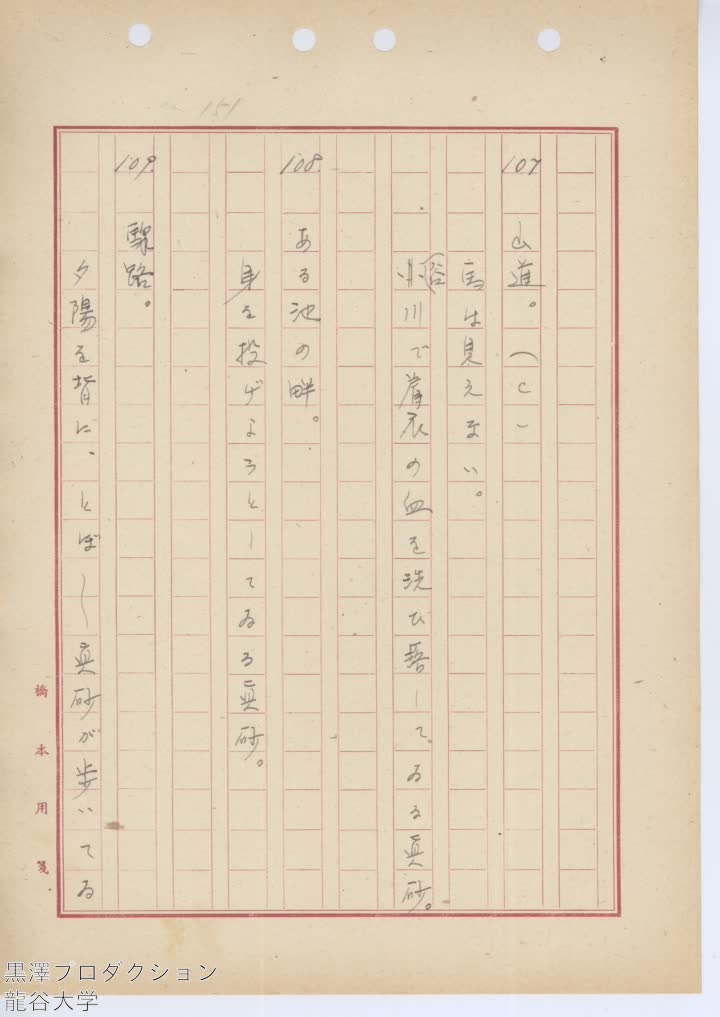 151
107 山道。(C)
馬は見えない。
谷川で着衣の血を洗ひ落してゐる眞砂。
108. ある池の畔。
身を投げようとしてゐる眞砂。
109. 驛路。
夕陽を背に、とぼ〳〵眞砂が歩いてゐ
橋本用箋
黒澤プロダクション
龍谷大学